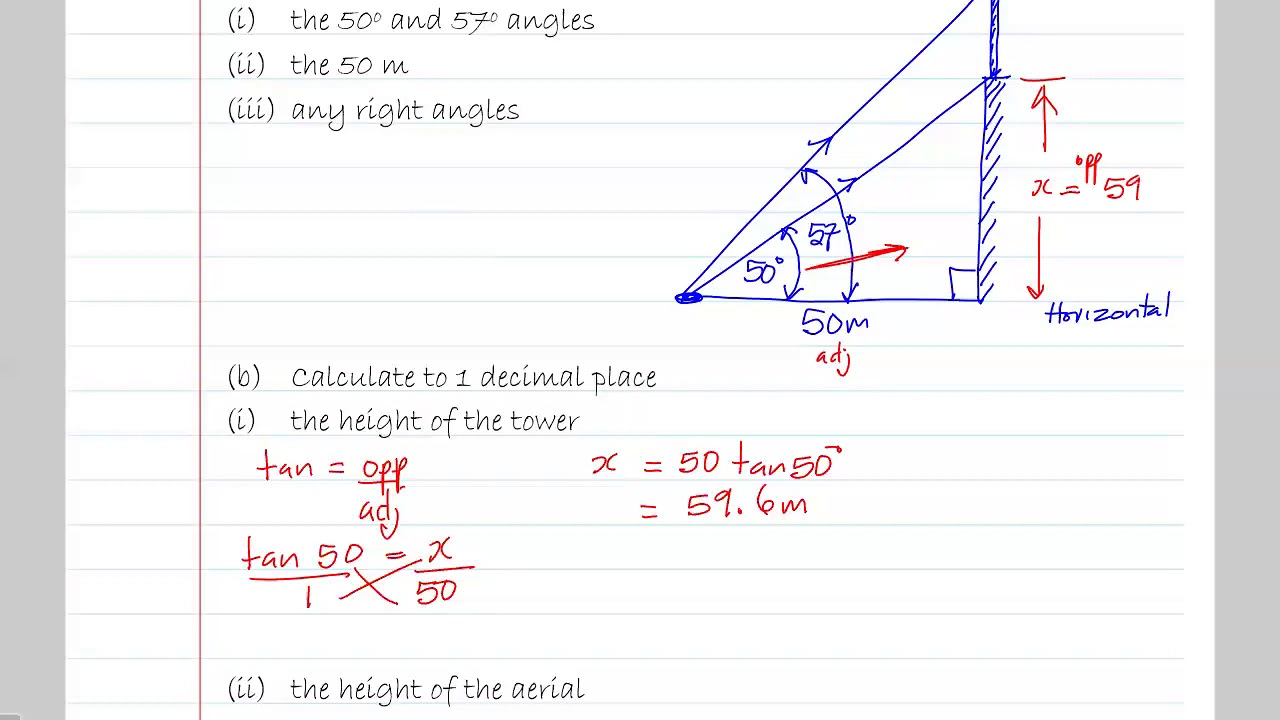 (i) the 50° and 57° angles
(ii) the 50 m
(iii) any right angles
opp
x = 59
57°
50°
Horizontal
50m
adj
(b) Calculate to 1 decimal place
(i) the height of the tower
tan = opp
adj
x = 50 tan 50°
= 59.6m
tan 50 = x
1 50
(ii) the height of the aerial